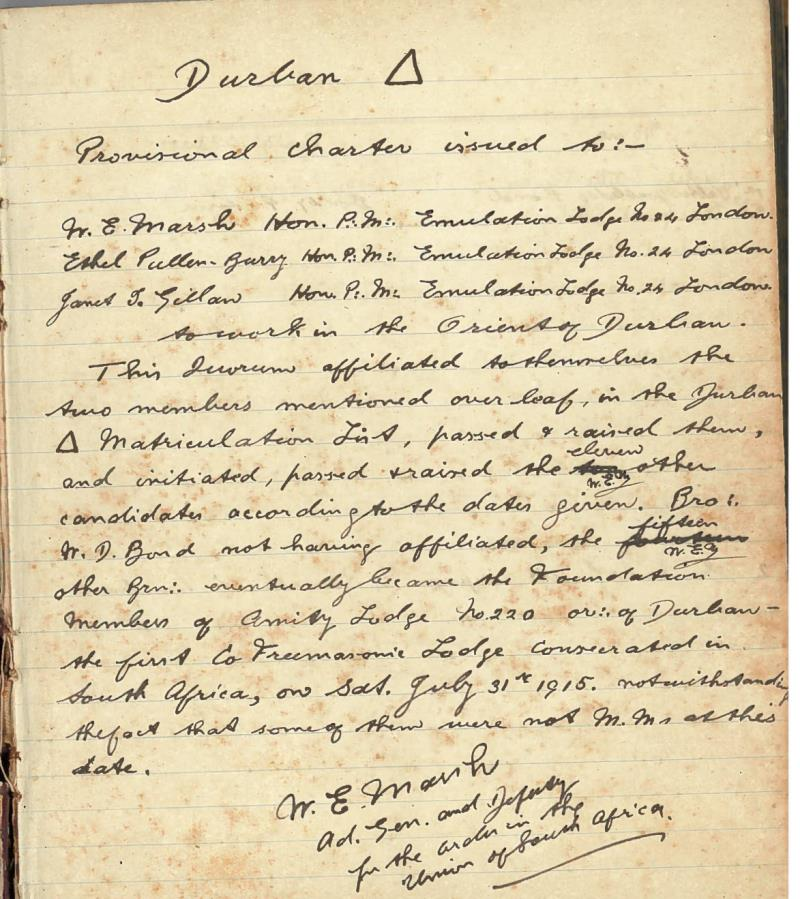 Durban △
Provisional Charter issued to:—
W. E. Marsh Hon. P∴M∴ Emulation Lodge No 24 London.
Ethel Pullen-Burry Hon. P∴M∴ Emulation Lodge No. 24 London
Janet T. Gillan Hon. P∴M∴ Emulation Lodge No. 24 London.
to work in the Orient of Durban.
This Quorum affiliated to themselves the
two members mentioned over leaf, in the Durban
△ Matriculation List, passed & raised them,
eleven
and initiated, passed & raised the other
W.E.M
candidates according to the dates given. Bro∴
fifteen
W. D. Bond not having affiliated, the fourteen
W.E.M
other Brn∴ eventually became the Foundation
Members of Amity Lodge No. 220 or∴ of Durban –
the first Co Freemasonic Lodge consecrated in
South Africa, on Sat. July 31st 1915. notwithstanding
the fact that some of them were not M.Ms at this
date.
W. E. Marsh
Ad. Gen. and Deputy
for the order in the
Union of South Africa.